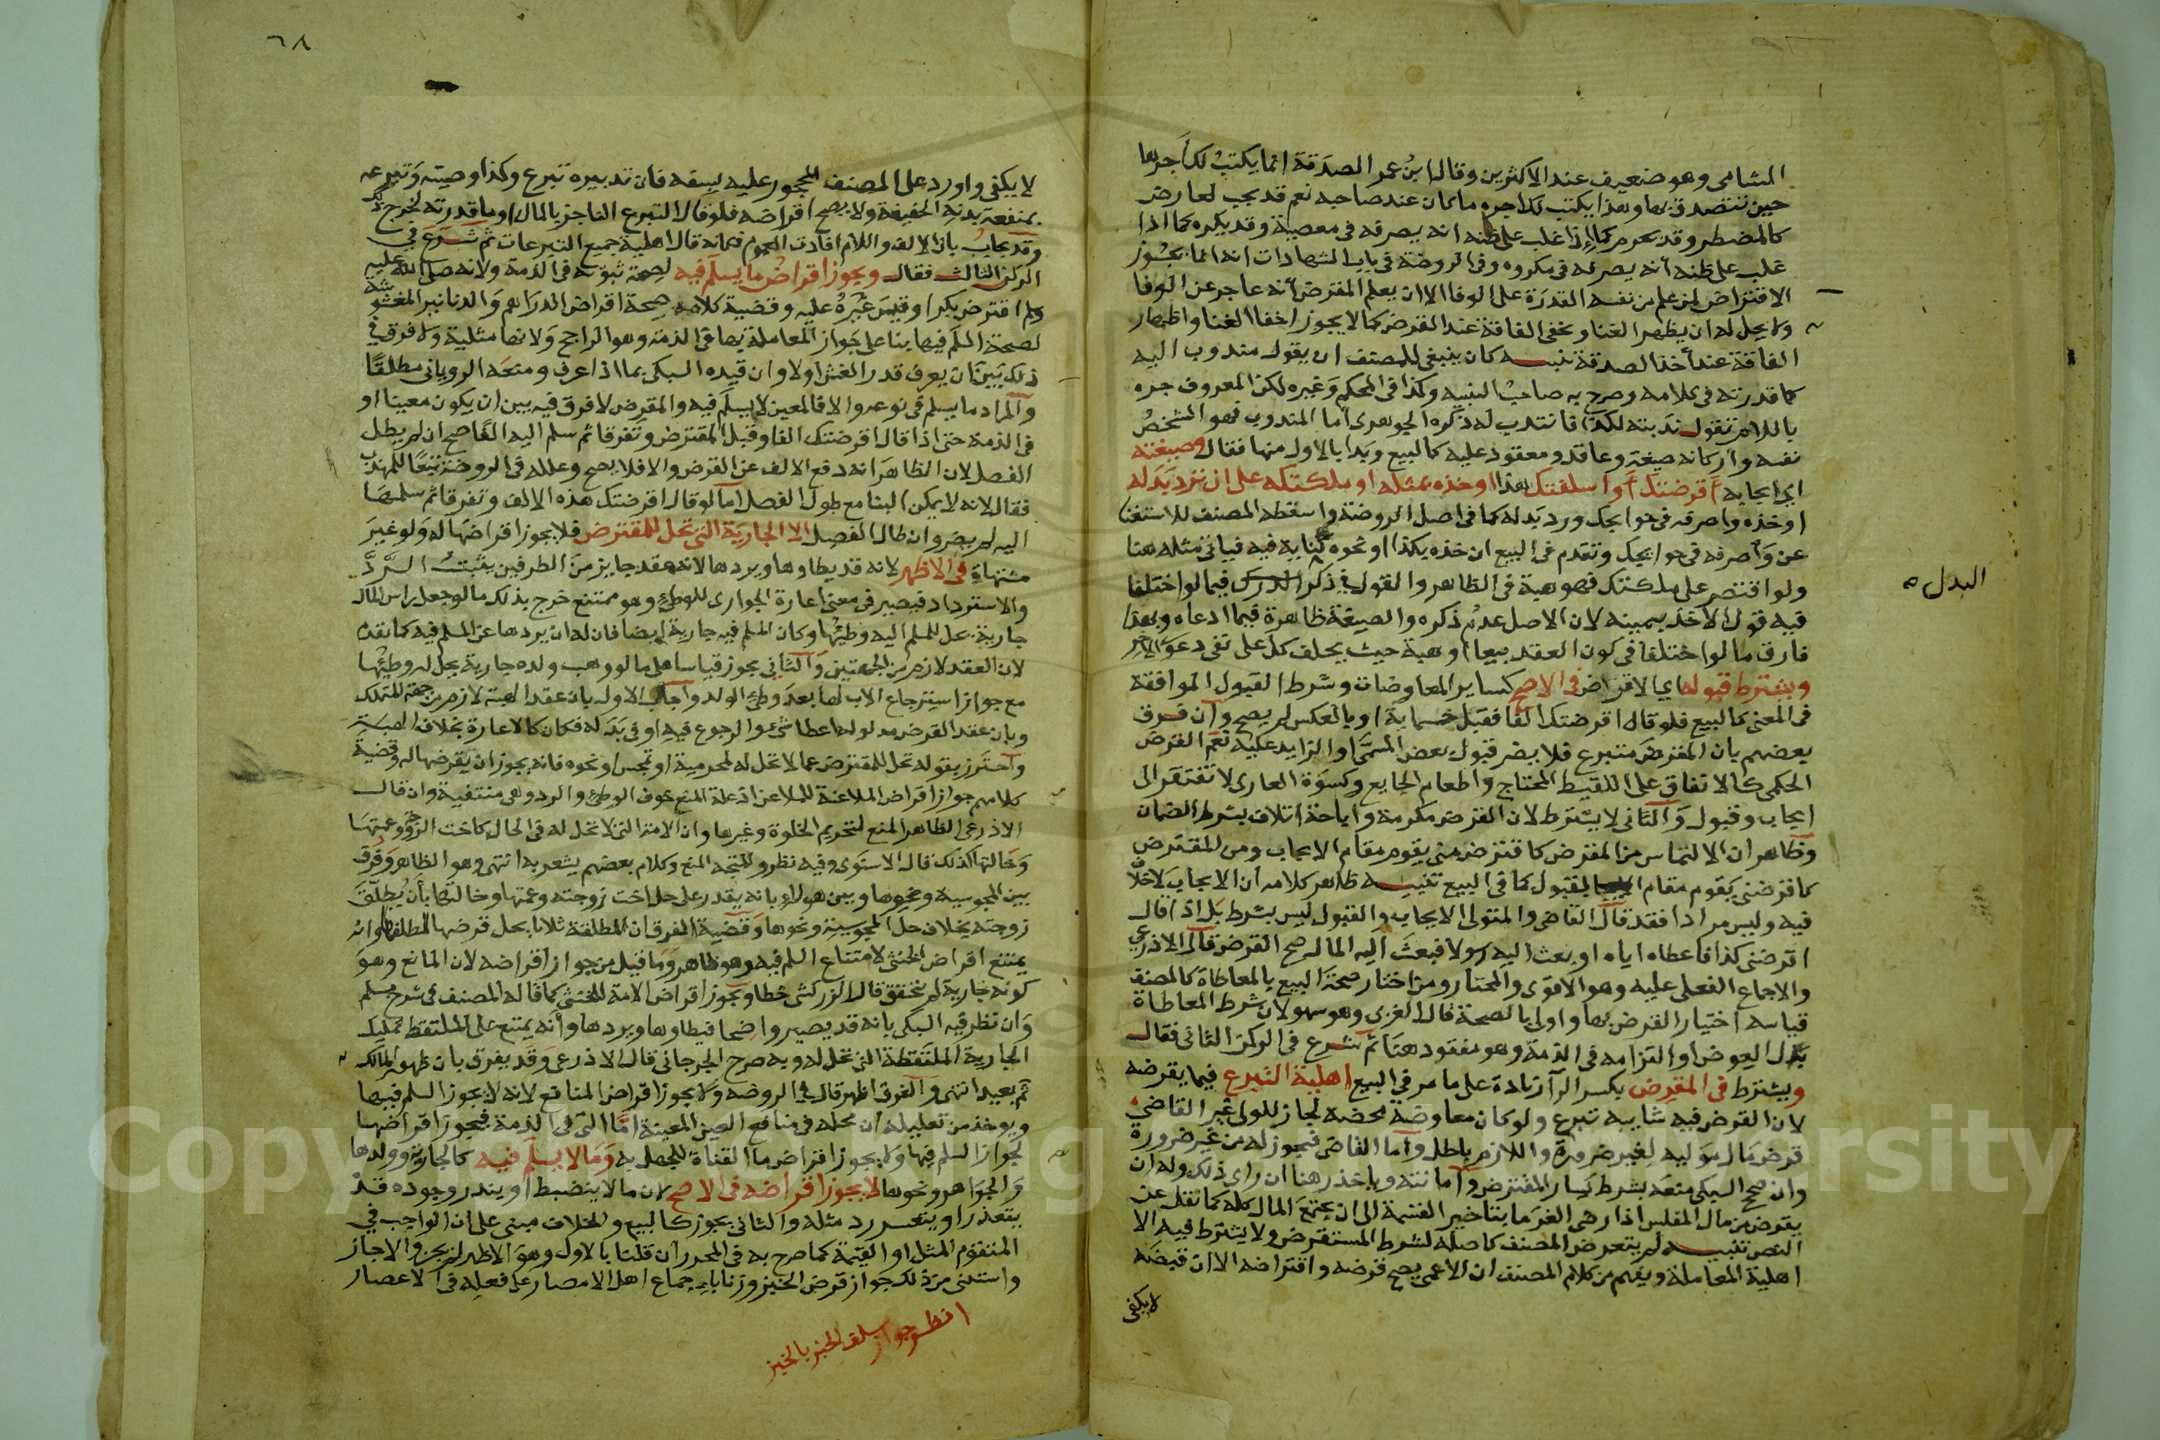 الشامى وهو ضعيف عند الاكثرين وقال ابن عمر الصدقة انما يكتب لك اجرها
حين تتصدق بها وهذا يكتب لك اجره ما كان عند صاحبه نعم قد يجب لعارض
كالمضطر وقد يحرم كما إذا غلب على ظنه انه يصرفه فى معصية وقد يكره كما اذا
غلب على ظنه انه يصرفه فى مكروه وفى الروضة فى باب الشهادات انه انما يجوز
الاقتراض لمن علم من نفسه القدرة على الوفا الا ان يعلم المقرض انه عاجز عن الوفا
ولا يحل له ان يظهر الغنا ويخفى الفاقة عند القرض كما لا يجوز اخفا الغنا واظهار
الفاقة عند أخذ الصدقة تنبيه كان ينبغى للمصنف ان يقول مندوب اليه
كما قدرته فى كلامه وصرح به صاحب التنبيه وكذا فى المحكم وغيره لكن المعروف جره
باللام تقول ندبته لكذا فانتدب له ذكره الجوهرى اما المندوب فهو الشخص
نفسه واركانه صيغة وعاقد ومعقود عليه كالبيع وبدا بالاول منها فقال وصيغته
اي ايجابه أقرضتك أو أسلفتك هذا او خذه بمثله او ملكتكه على ان ترد بدله
او خذه واصرفه فى حوايجك ورد بدله كما فى اصل الروضة واسقطه المصنف للاستغنا
عن واصرفه فى حوايجك وتقدم فى البيع ان خذه بكذا او نحوه كناية فيه فياتى مثله هنا
ولو اقتصر على ملكتك فهو هبة فى الظاهر والقول فى ذكر البدل فيما لو اختلفا
فيه قول الآخذ بيمينه لان الاصل عدم ذكره والصيغة ظاهرة فيما ادعاه وبهذا
فارق ما لو اختلفا فى كون العقد بيعا او هبة حيث يحلف كل على نفى دعوى الآخر
ويشترط قبوله اي الاقراض فى الاصح كساير المعاوضات وشرط القبول الموافقة
فى المعنى كالبيع فلو قال اقرضتك الفا فقبل خسماية او بالعكس لم يصح وان فرق
بعضهم بان المقرض متبرع فلا يضر قبول بعض المسمى او الزايد عليه نعم القرض
الحكمى كالانفاق على اللقيط المحتاج واطعام الجايع وكسوة العارى لا تفتقر الى
ايجاب وقبول والثانى لا يشترط لان القرض مكرمة واباحة اتلاف بشرط الضمان
وظاهر ان الالتماس من المقرض كاقترض منى يقوم مقام الايجاب ومن المقترض
كاقرضنى يقوم مقام القبول كما فى البيع تنبيه ظاهر كلامه ان الايجاب لا خلاف
فيه وليس مرادا فقد قال القاضى والمتولى الايجاب والقبول ليس بشرط بل اذا قال
اقرضنى كذا فاعطاه اياه او بعث اليه رسولا فبعث اليه المال صح القرض قال الاذرعى
والاجماع الفعلى عليه وهو الاقوى والمختار ومن اختار صحة البيع بالمعاطاة كالمصنف
قياسه اختيار القرض بها واولى بالصحة قال الغزى وهو سهو لان شرط المعاطاة
بذل العوض او التزامه فى الذمة وهو مفقود هنا ثم شرع فى الركن الثانى فقال
ويشترط فى المقرض بكسر الرآ زيادة على ما مر فى البيع اهلية التبرع فيما يقرضه
لان القرض فيه شايبة تبرع ولو كان معاوضة محضة لجاز للولى غير القاضى
قرض مال موليه لغير ضرورة واللازم باطل واما القاضى فيجوز له من غير ضرورة
وان صحح السبكى منعه بشرط يسار المقترض وامانته وياخذ رهنا ان راى ذلك وله ان
يقرض من مال المفلس اذا رضى الغرما بتاخير القسمة الى ان يجتمع المال كله كما نقل عن
النص تنبيه لم يتعرض المصنف كاصله لشرط المستقرض ولا يشترط فيه الا
اهلية المعاملة ويفهم من كلام المصنف ان الاعمى يصح قرضه واقتراضه الا ان قبضه
لا يكفى
البدل
٦٨
لا يكفى واورد على المصنف المحجور عليه بسفه فان تدبيره تبرع وكذا وصيته وتبرعه
بمنفعة بدنه الخفيفة ولا يصح اقراضه فلو قال التبرع الناجز بالمال او ما قدرته لخرج ذلك
وقد يجاب بان الالف واللام افادت العموم فكانه قال اهلية جميع التبرعات ثم شرع فى
الركن الثالث فقال ويجوز اقراض ما يسلم فيه لصحة ثبوته فى الذمة ولانه صلى الله عليه
وسلم اقترض بكرا وقيس غيره عليه وقضية كلامه صحة اقراض الدراهم والدنانير المغشوشة
لصحة السلم فيها بنا على جواز المعاملة بها فى الذمة وهو الراجح ولانها مثلية ولا فرق فى
ذلك بين ان يعرف قدر الغش اولا وان قيده السبكى بما اذا عرف ومنعه الرويانى مطلقا
والمراد ما يسلم فى نوعه والا فالمعين لا يسلم فيه والمقرض لا فرق فيه بين ان يكون معينا او
فى الذمة حتى اذا قال اقرضتك الفا وقبل المقترض وتفرقا ثم سلم اليه الفا صح ان لم يطل
الفصل لان الظاهر انه دفع الالف عن القرض والا فلا يصح وعلله فى الروضة تبعا للمهذب
فقال لانه لا يمكن البنا مع طول الفصل اما لو قال اقرضتك هذه الالف وتفرقا ثم سلمها
اليه لم يضر وان طال الفصل الا الجارية التى تحل للمقترض فلا يجوز اقراضها له ولو غير
مشتهاة فى الاظهر لانه قد يطاوها ويردها لانه عقد جايز من الطرفين يثبت الرد
والاسترداد فيصير فى معنى اعارة الجوارى للوطئ وهو ممتنع خرج بذلك ما لو جعل راس المال
جارية يحل للمسلم اليه وطئها وكان المسلم فيه جارية ايضا فان له ان يردها عن المسلم فيه كما تقدم
لان العقد لازم من الجهتين والثانى يجوز قياسا على ما لو وهب ولده جارية يحل له وطئها
مع جواز استرجاع الاب لها بعد وطئ الولد واجاب الاول بان عقد الهبة لازم من جهة المتملك
وبان عقد القرض مدلوله اعطا شئ والرجوع فيه او فى بدله فكان كالاعارة بخلاف الهبة
واحترز بقوله تحل للمقترض عما لا تحل له لمحرمية او تمجس او نحوه فانه يجوز ان يقرضها له وقضية
كلامهم جواز اقراض الملاعنة للملاعن اذ علة المنع خوف الوطئ والرد وهى منتفية وان قال
الاذرعى الظاهر المنع لتحريم الخلوة وغيرها وان الامة التى لا تحل له فى الحال كاخت الزوجة وعمتها
وخالتها كذلك قال الاسنوى وفيه نظر والمتجه المنع وكلام بعضهم يشعر به انتهى وهو الظاهر وفرق
بين المجوسية ونحوها وبين هولاء بانه يقدر على حل اخت زوجته وعمتها وخالتها بأن يطلق
زوجته بخلاف حل المجوسية ونحوها وقضية الفرق ان المطلقة ثلاثا يحل قرضها لمطلقها وانه
يمتنع اقراض الخنثى لامتناع السلم فيه وهو ظاهر وما قيل من جواز اقراضه لان المانع وهو
كونه جارية لم يتحقق قال الزركشى خطا ويجوز اقراض الامة للخنثى كما قاله المصنف فى شرح مسلم
وان نظر فيه السبكى بانه قد يصير واضحا فيطاوها ويردها وأنه يمتنع على الملتقط تمليك
الجارية الملتقطة التى تحل له وبه صرح الجرجانى قال الاذرعى وقد يفرق بان ظهور المالك
ثم بعيد انتهى والفرق اظهر قال فى الروضة ولا يجوز اقراض المنافع لانه لا يجوز السلم فيها
ويوخذ من تعليله ان محله فى منافع العين المعينة اما التى فى الذمة فيجوز اقراضها
لجواز السلم فيها ولا يجوز اقراض ما القناة للجهل به وما لا يسلم فيه كالجارية وولدها
والجواهر ونحوها لا يجوز اقراضه فى الاصح لان ما لا ينضبط او يندر وجوده قد
يتعذر او يتعسر رد مثله والثانى يجوز كالبيع والخلاف مبنى على ان الواجب فى
المتقوم المثل او القيمة كما صرح به فى المحرر ان قلنا بالاول وهو الاظهر لم يجز والا جاز
واستثنى من ذلك جواز قرض الخبز وزنا باجماع اهل الامصار على فعله فى الاعصار
انظر جواز سلف الخبز بالخبز